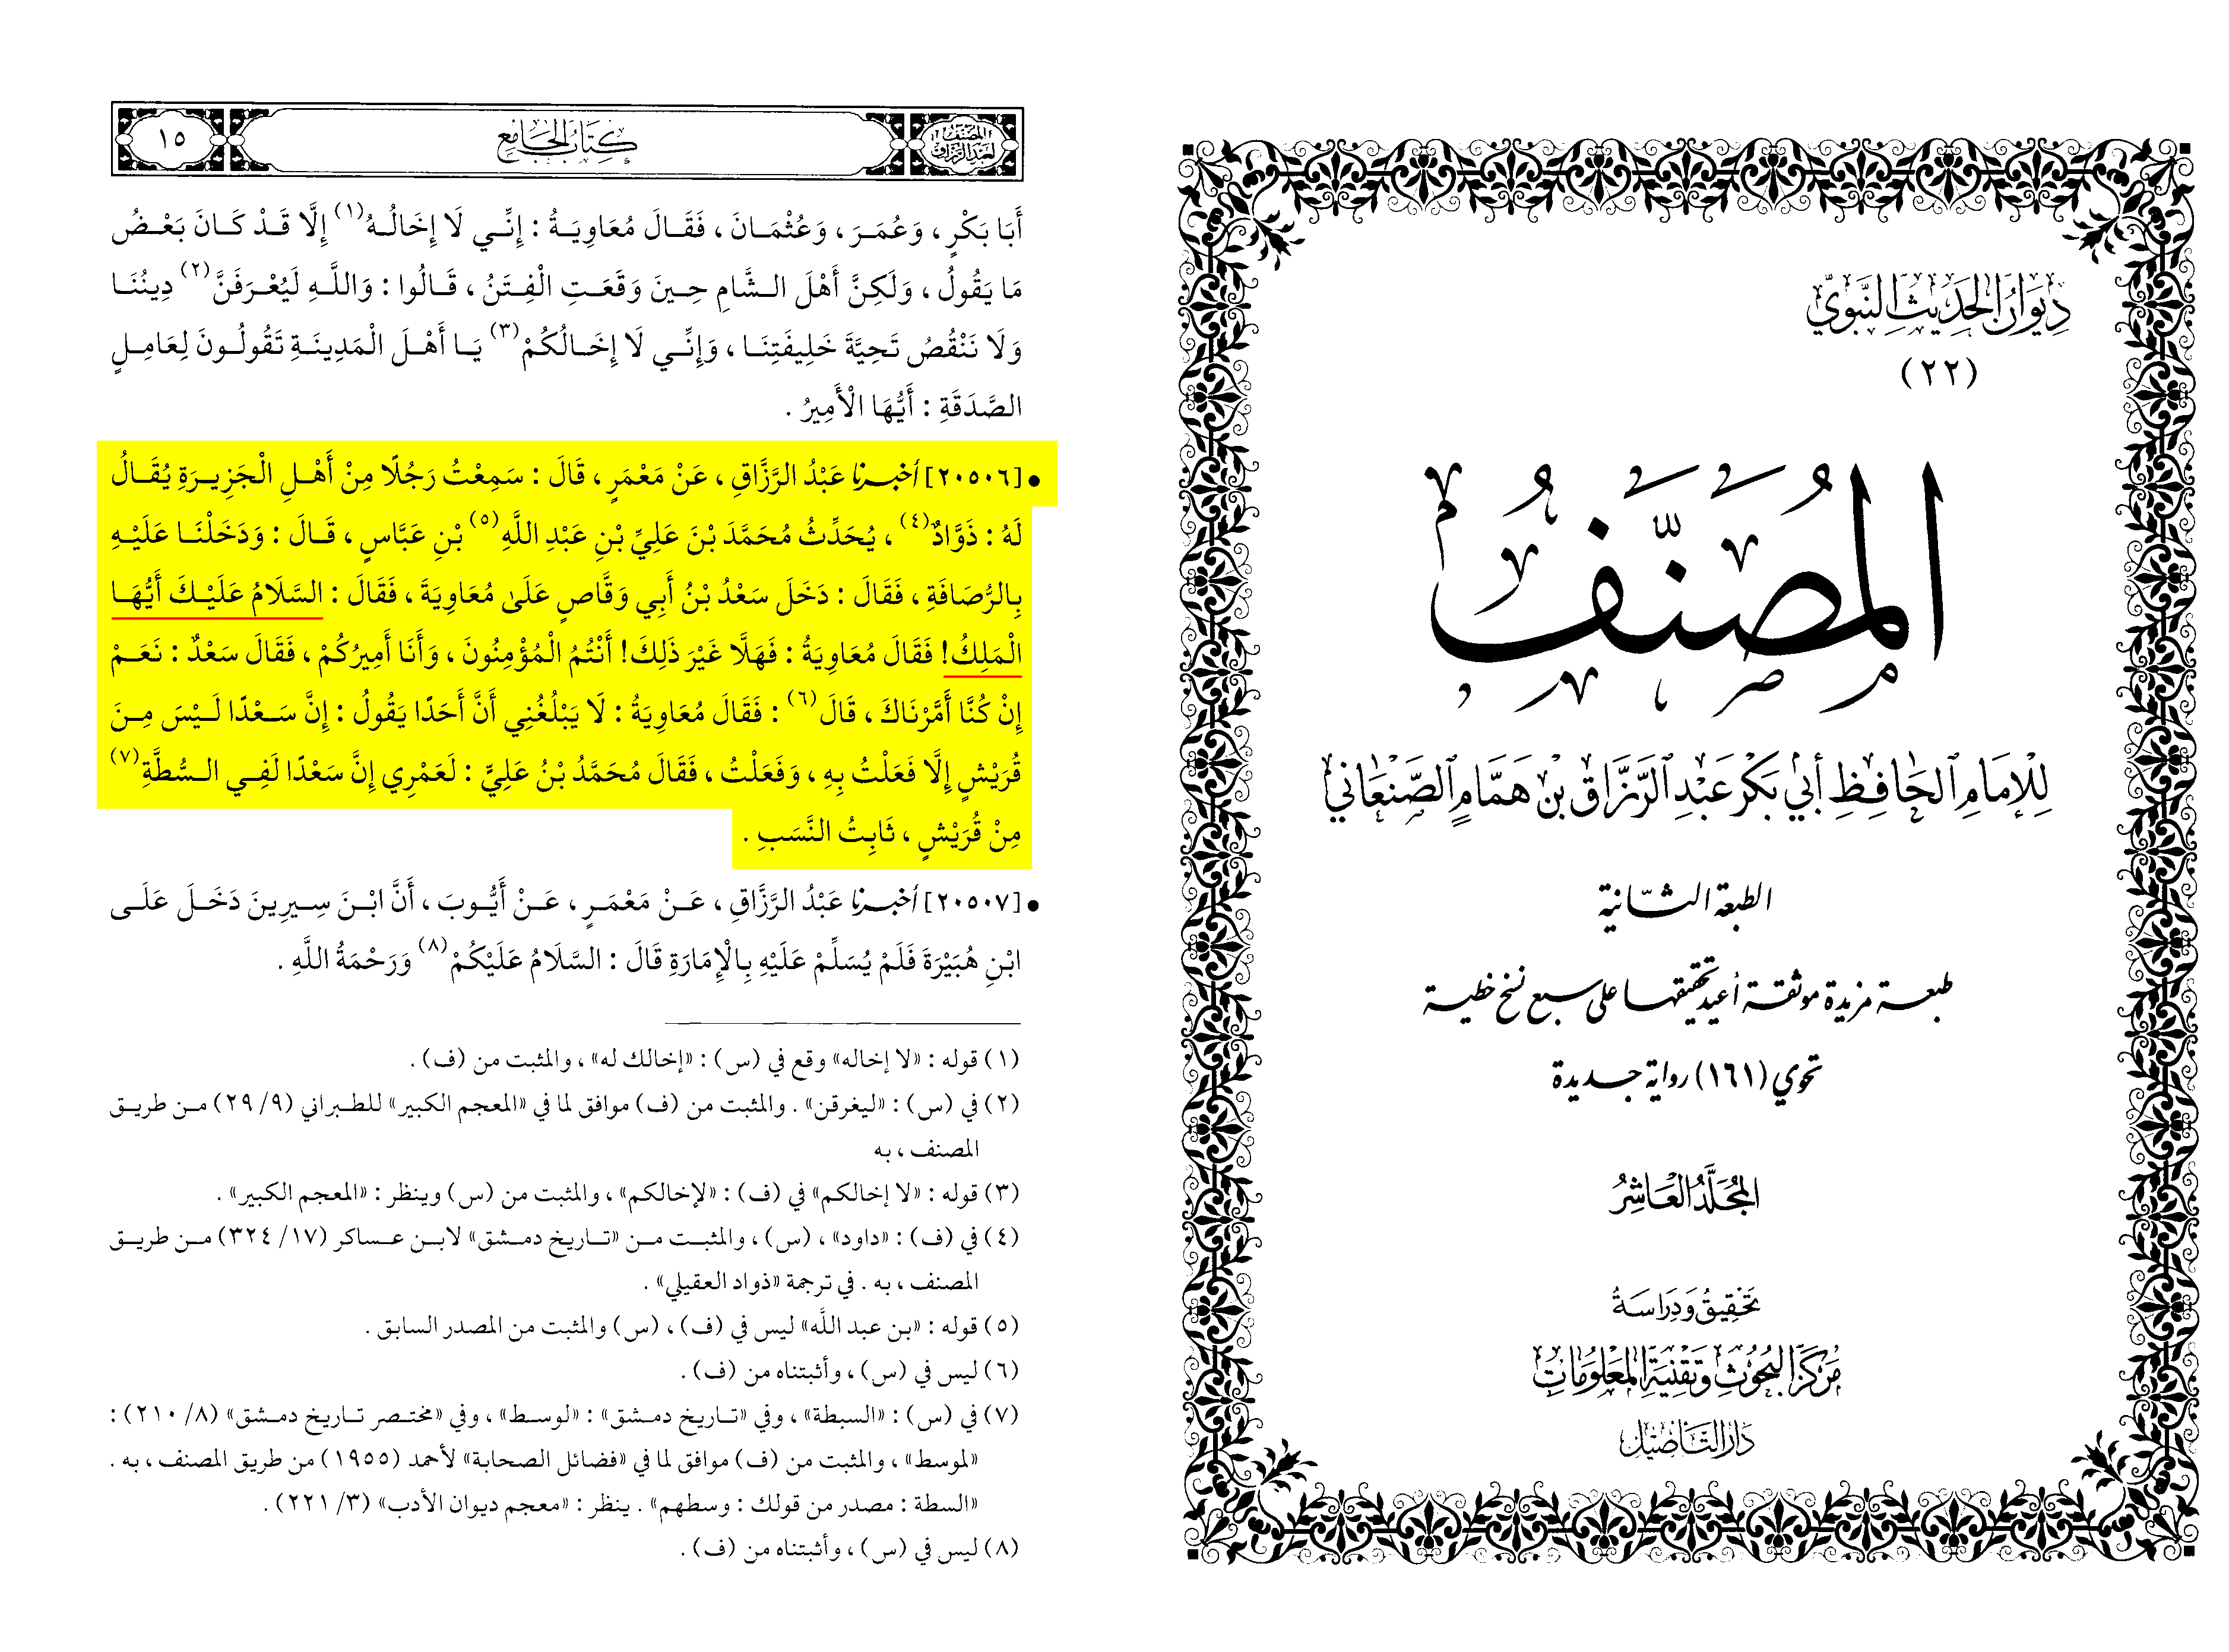 ديوان الحديث النبوي
(٢٢)
المُصَنَّفُ
لِلإِمَامِ الحَافِظِ أَبي بَكْر عَبْدِ الرَّزَّاق بن هَمَّامٍ الصَّنْعَاني
الطبعة الثانية
طبعة مزيدة موثقة أعيد تحقيقها على سبع نسخ خطية
تحوي (١٦١) رواية جديدة
المُجَلَّدُ العَاشِرُ
تَحْقِيقُ وَدِرَاسَةُ
مَرْكَزُ البُحُوثِ وَتَقْنِيَةِ المَعْلُومَاتِ
دَارُ التَّأصِيْل
المصنف لعبد الرزاق
كِتَابُ الجَامِع
١٥
أَبَا بَكْرٍ ، وَعُمَرَ ، وَعُثْمَانَ ، فَقَالَ مُعَاوِيَةُ : إِنِّي لَا إِخَالُهُ(١) إِلَّا قَدْ كَانَ بَعْضُ
مَا يَقُولُ ، وَلَكِنَّ أَهْلَ الشَّامِ حِينَ وَقَعَتِ الْفِتَنُ ، قَالُوا : وَاللَّهِ لَيُعْرَفَنَّ(٢) دِينُنَا
وَلَا نَنْقُصُ تَحِيَّةَ خَلِيفَتِنَا ، وَإِنِّي لَا إِخَالُكُمْ(٣) يَا أَهْلَ الْمَدِينَةِ تَقُولُونَ لِعَامِلِ
الصَّدَقَةِ : أَيُّهَا الْأَمِيرُ .
• [٢٠٥٠٦] أخبرنا عَبْدُ الرَّزَّاقِ ، عَنْ مَعْمَرٍ ، قَالَ : سَمِعْتُ رَجُلًا مِنْ أَهْلِ الْجَزِيرَةِ يُقَالُ
لَهُ : ذَوَّادٌ(٤) ، يُحَدِّثُ مُحَمَّدَ بْنَ عَلِيِّ بْنِ عَبْدِ اللَّهِ(٥) بْنِ عَبَّاسٍ ، قَالَ : وَدَخَلْنَا عَلَيْهِ
بِالرُّصَافَةِ ، فَقَالَ : دَخَلَ سَعْدُ بْنُ أَبِي وَقَّاصٍ عَلَى مُعَاوِيَةَ ، فَقَالَ : السَّلَامُ عَلَيْكَ أَيُّهَا
الْمَلِكُ! فَقَالَ مُعَاوِيَةُ : فَهَلَّا غَيْرَ ذَلِكَ! أَنْتُمُ الْمُؤْمِنُونَ ، وَأَنَا أَمِيرُكُمْ ، فَقَالَ سَعْدٌ : نَعَمْ
إِنْ كُنَّا أَمَّرْنَاكَ ، قَالَ(٦) : فَقَالَ مُعَاوِيَةُ : لَا يَبْلُغُنِي أَنَّ أَحَدًا يَقُولُ : إِنَّ سَعْدًا لَيْسَ مِنَ
قُرَيْشٍ إِلَّا فَعَلْتُ بِهِ ، وَفَعَلْتُ ، فَقَالَ مُحَمَّدُ بْنُ عَلِيٍّ : لَعَمْرِي إِنَّ سَعْدًا لَفِي السُّطَّةِ(٧)
مِنْ قُرَيْشٍ ، ثَابِتُ النَّسَبِ .
• [٢٠٥٠٧] أخبرنا عَبْدُ الرَّزَّاقِ ، عَنْ مَعْمَرٍ ، عَنْ أَيُّوبَ ، أَنَّ ابْنَ سِيرِينَ دَخَلَ عَلَى
ابْنِ هُبَيْرَةَ فَلَمْ يُسَلِّمْ عَلَيْهِ بِالْإِمَارَةِ قَالَ : السَّلَامُ عَلَيْكُمْ(٨) وَرَحْمَةُ اللَّهِ .
(١) قوله : «لا إخاله» وقع في (س) : «إخالك له» ، والمثبت من (ف) .
(٢) في (س) : «ليغرقن» . والمثبت من (ف) موافق لما في «المعجم الكبير» للطبراني (٩/ ٢٩) من طريق
المصنف ، به
(٣) قوله : «لا إخالكم» في (ف) : «لإخالكم» ، والمثبت من (س) وينظر : «المعجم الكبير» .
(٤) في (ف) : «داود» ، (س) ، والمثبت من «تاريخ دمشق» لابن عساكر (١٧/ ٣٢٤) من طريق
المصنف ، به . في ترجمة «ذواد العقيلي» .
(٥) قوله : «بن عبد اللَّه» ليس في (ف) ، (س) والمثبت من المصدر السابق .
(٦) ليس في (س) ، وأثبتناه من (ف) .
(٧) في (س) : «السبطة» ، وفي «تاريخ دمشق» : «لوسط» ، وفي «مختصر تاريخ دمشق» (٨/ ٢١٠) :
«لموسط» ، والمثبت من (ف) موافق لما في «فضائل الصحابة» لأحمد (١٩٥٥) من طريق المصنف ، به .
«السطة : مصدر من قولك : وسطهم» . ينظر : «معجم ديوان الأدب» (٣/ ٢٢١) .
(٨) ليس في (س) ، وأثبتناه من (ف) .